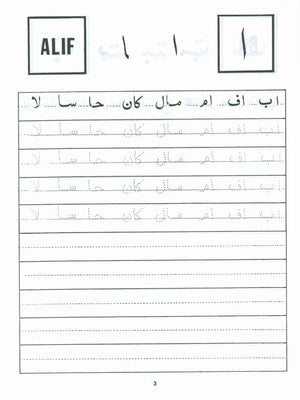 ALIF ا ا ا
اب اف ام مال كان حا سا لا
اب اف ام مال كان حا سا لا
اب اف ام مال كان حا سا لا
اب اف ام مال كان حا سا لا
اب اف ام مال كان حا سا لا
3